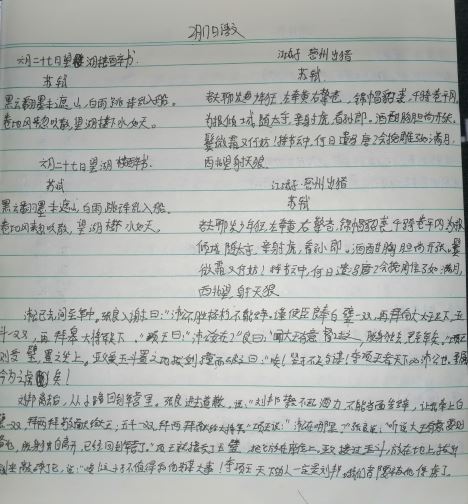 2月17日语文
六月二十七日望湖楼醉书 江城子 密州出猎
苏轼 苏轼
黑云翻墨未遮山,白雨跳珠乱入船。 老夫聊发少年狂,左牵黄右擎苍,锦帽貂裘,千骑卷平冈,
卷地风来忽吹散,望湖楼下水如天。 为报倾城随太守,亲射虎,看孙郎。酒酣胸胆尚开张,
鬓微霜又何妨!持节云中,何日遣冯唐?会挽雕弓如满月,
六月二十七日望湖楼醉书 西北望射天狼
苏轼 江城子 密州出猎
黑云翻墨未遮山,白雨跳珠乱入船。 苏轼
卷地风来忽吹散,望湖楼下水如天。 老夫聊发少年狂,左牵黄右擎苍,锦帽貂裘,千骑卷平冈为报
倾城随太守,亲射虎,看孙郎。酒酣胸胆尚开张,鬓
微霜又何妨!持节云中,何日遣冯唐?会挽雕弓如满月,
西北望射天狼
沛公已去,间至军中。张良入谢,曰:"沛公不胜杯杓,不能辞。谨使臣良奉白璧一双,再拜献大王足下,玉
斗一双,再拜奉大将军足下。"项王曰:"沛公安在?"良曰:"闻大王有意督过之,脱身独去,已至军矣。"项王
则受璧,置之坐上。亚父受玉斗,置之地,拔剑撞而破之,曰:"唉!竖子不足与谋!夺项王天下者必沛公也,吾属
今为之虏矣!
刘邦离去后,从小路回到军营里。张良进去道歉,说:"刘邦禁不起酒力,不能当面告辞,让我奉上白
璧一双,拜两拜敬献给大王;玉斗一双,拜两拜献给大将军。"项王说:"沛公在哪里?"张良说:"听说大王有意要责
备他,脱身独自离开,已经回到军营了。"项王就接受了玉璧,把它放在座位上。亚父接过玉斗,放在地上,拔出
剑来敲碎它,说:"唉!这小子不值得和他共谋大事!夺项王天下的人一定是刘邦,我们都要被他俘虏了。